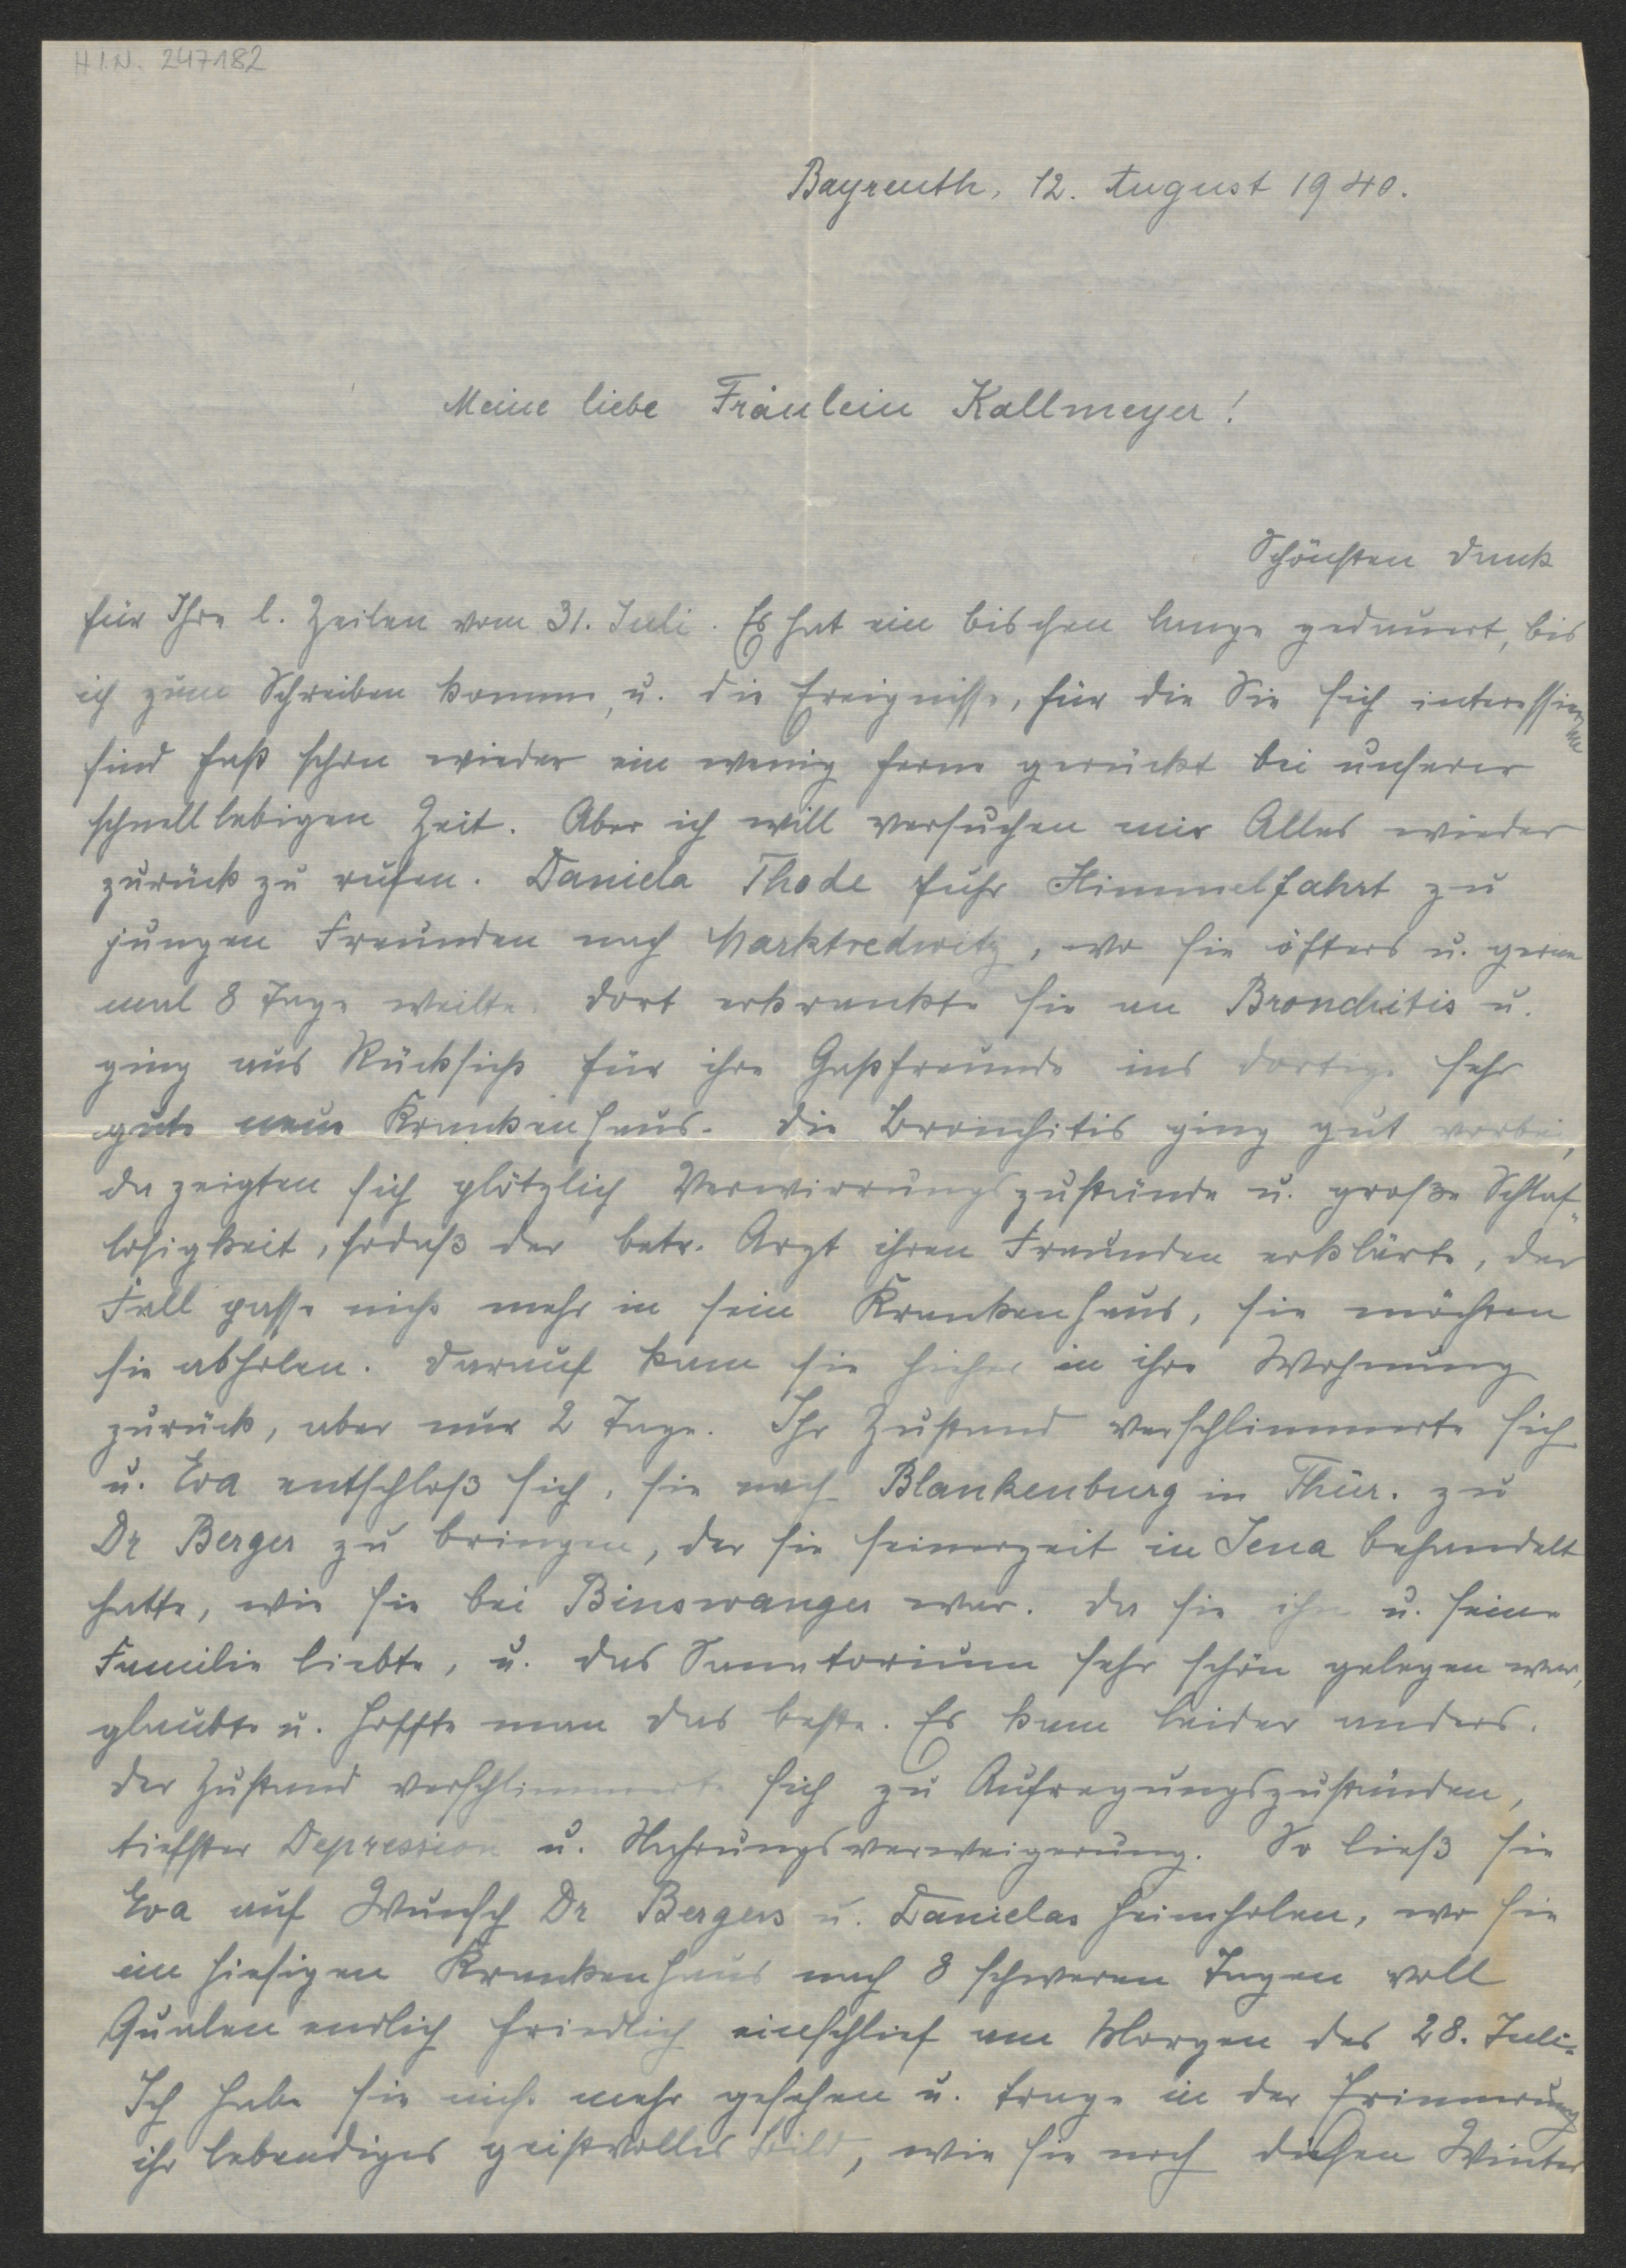 H.I.N. 247182
Bayreuth, 12. August 1940.
Meine liebe Fräulein Kallmeyer!
Schönsten Dank
für Ihre l. Zeilen vom 31. Juli. Es hat ein bischen lange gedauert, bis
ich zum Schreiben komme, u. die Ereignisse, für die Sie sich interessieren
sind fast schon wieder ein wenig ferne gerückt bei unserer
schnelllebigen Zeit. Aber ich will versuchen mir Alles wieder
zurück zu rufen. Daniela Thode fuhr Himmelfahrt zu
jungen Freunden nach Marktredwitz, wo sie öfters u. gerne
mal 8 Tage weilte. Dort erkrankte sie an Bronchitis u.
ging aus Rücksicht für ihre Gastfreunde ins dortige sehr
gute neue Krankenhaus. Die Bronchitis ging gut vorbei,
da zeigten sich plötzlich Verwirrungszustände u. große Schlaf-
losigkeit, sodaß der betr. Arzt ihren Freunden erklärte, der
Fall passe nicht mehr in sein Krankenhaus, sie möchten
sie abholen. Darauf kam sie hieher in ihre Wohnung
zurück, aber nur 2 Tage. Ihr Zustand verschlimmerte sich
u. Eva entschloß sich, sie nach Blankenburg in Thür. zu
Dr Berger zu bringen, der sie seinerzeit in Jena behandelt
hatte, wie sie bei Binswanger war. Da sie ihn u. seine
Familie liebte, u. das Sanatorium sehr schön gelegen war,
glaubte u. hoffte man das beste. Es kam leider anders.
Der Zustand verschlimmerte sich zu Aufregungszuständen,
tiefster Depression u. Nahrungsverweigerung. So ließ sie
Eva auf Wunsch Dr Bergers u. Danielas heimholen, wo sie
im hiesigen Krankenhaus nach 8 schweren Tagen voll
Qualen endlich friedlich einschlief am Morgen des 28. Juli.
Ich habe sie nicht mehr gesehen u. trage in der Erinnerung
ihr lebendiges geistvolles Bild, wie sie noch diesen Winter